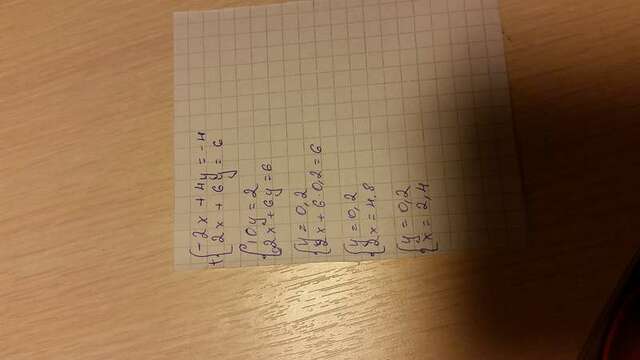 +{-2x + 4y = -4
2x + 6y = 6
{10y = 2
2x + 6y = 6
{y = 0,2
2x + 6·0,2 = 6
{y = 0,2
2x = 4.8
{y = 0,2
x = 2,4